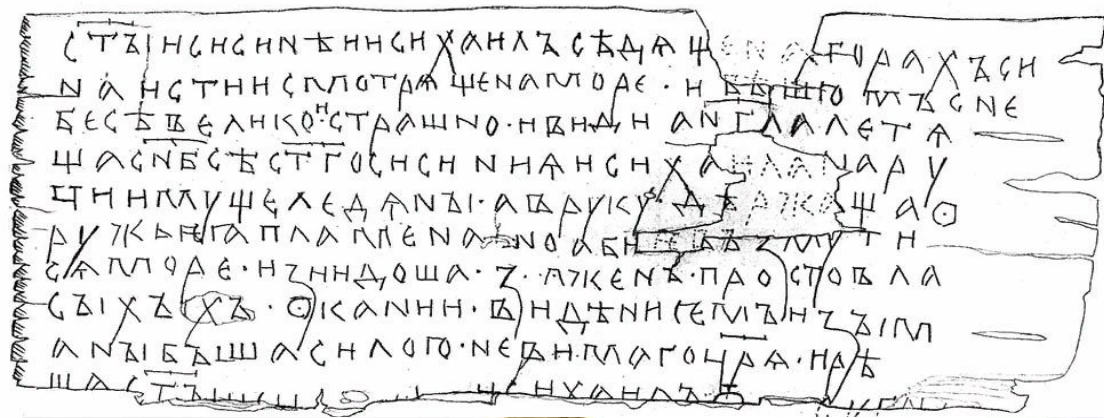 С҃ТЪІИСИСИНѢИИСИХАИЛЪСѢДѦЩЕНАГОРАХЪСИ
НАИСТИИСМОТРѦЩЕНАМОРЕ · ИБЪШЮМЪСНЕ
БЕСЪВЕЛИКОИСТРАШНО · ИВИДИАНГ҃ЛАЛЕТѦ
ЩАСН҃БСѢСТ҃ГОСИСИНИѦИСИХАИЛАНАРУ
ЦИИМУЩЕЛЕДѦНЪІ · АВРУКУ · ДЪРЖАЩАѺ
РУЖЬЕГАПЛАМЕНАНОАБИЕВЪЗМУТИ
СѦМОРЕ · ИЗИИДОША · З · ЖЕНЪ · ПРОСТОВЛА
СЪІХЪХЪ · ѺКАНИИ · ВИДѢНИГЕМЬИЗЪІМ
АНЪІБЪШАСИЛОГО · НЕВИМАГОЦ҃РѦ · ИРѢ
ШАСТ҃ЪІ СИХАИЛЪ